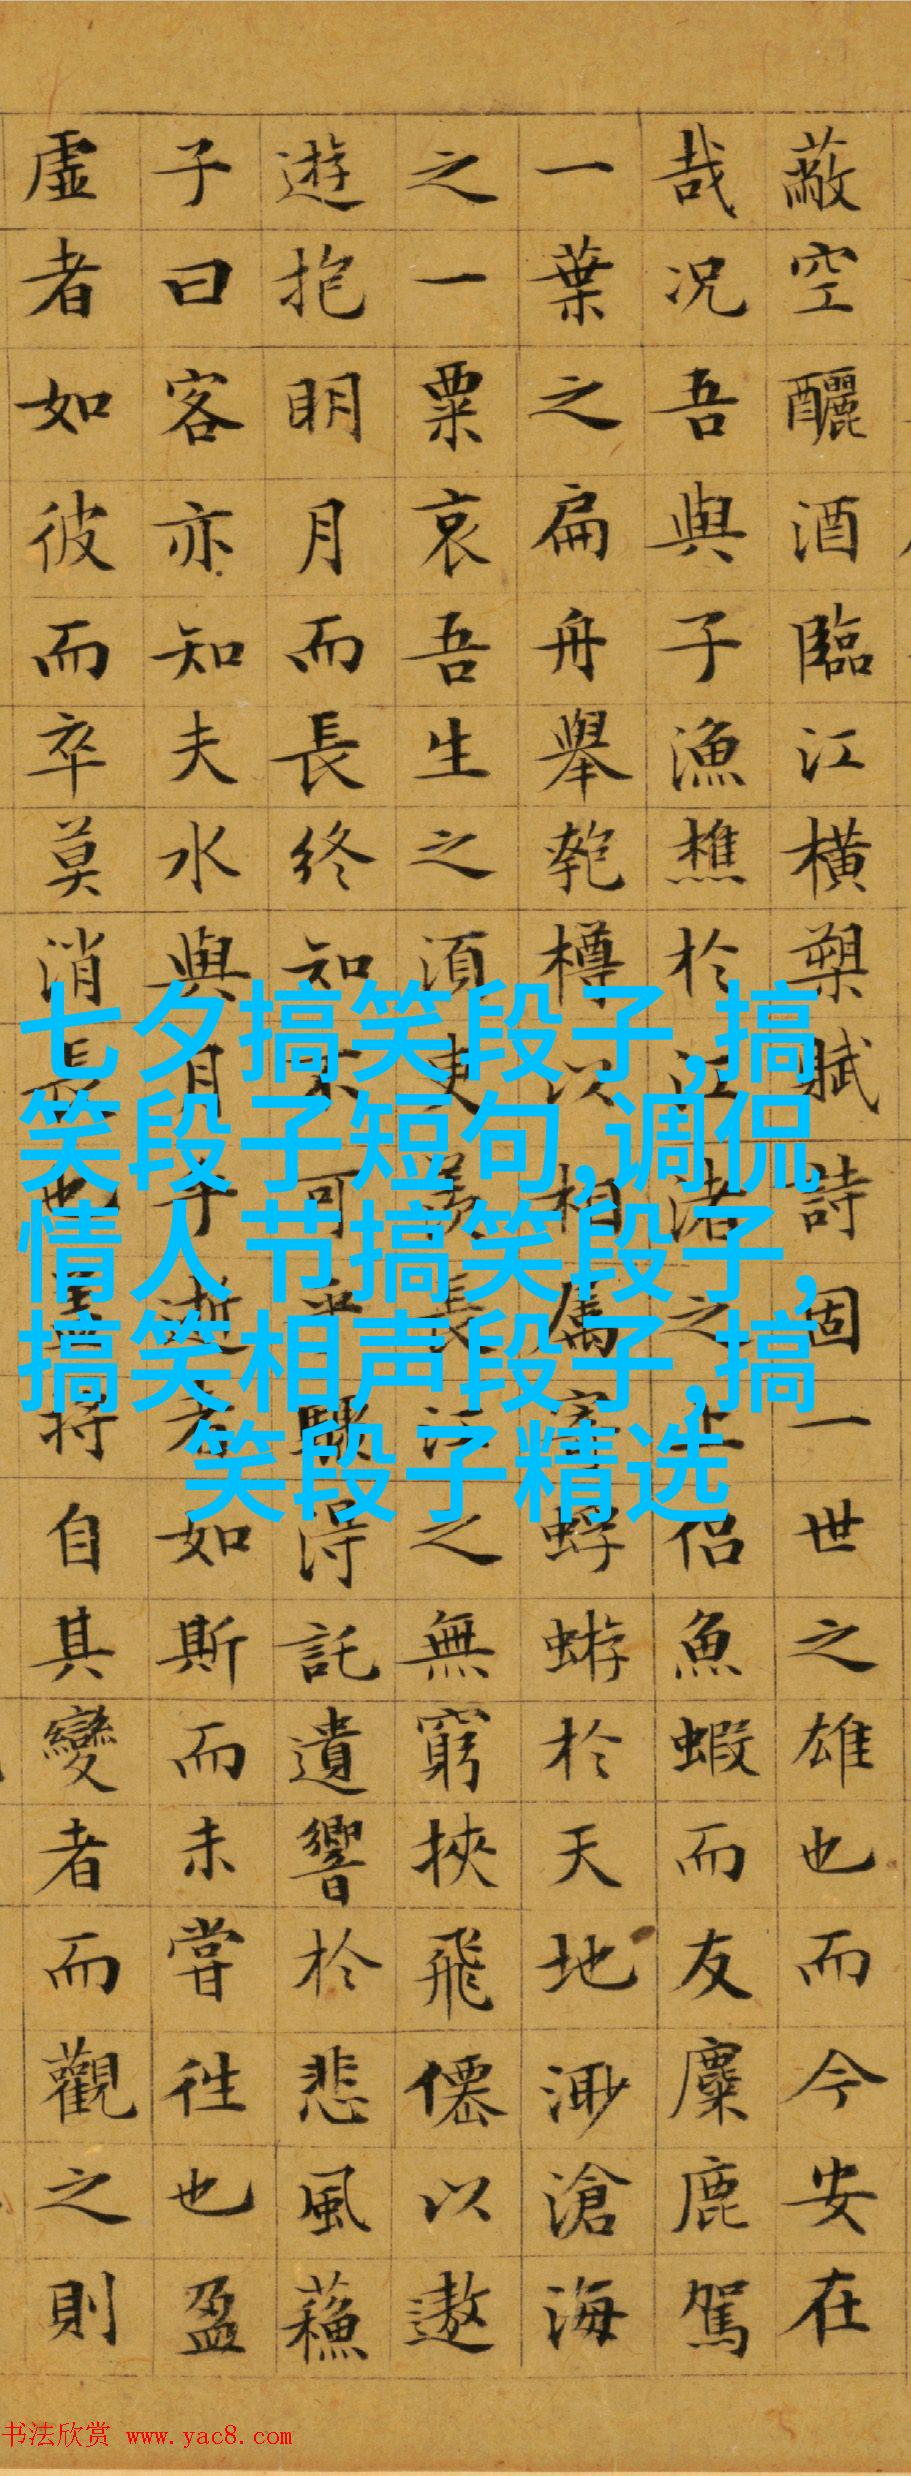 蔽空釃酒臨江橫槊賦詩固一世之雄也而今安在
哉况吾與子漁樵於江渚之上侣魚蝦而友麋鹿駕
一葉之扁舟舉匏樽以相属客蜉蝣於天地渺滄海
之一粟哀吾生之須臾羡長江之無窮挾飛僊以遨
遊抱明月而長終知不可乎驟得託遺響於悲風蘓
子曰客亦知夫水與月乎逝者如斯而未嘗往也盈
虛者如彼而卒莫消長也蓋将自其變者而觀之則
七夕搞笑段子,搞
笑段子短句,调侃
情人节搞笑段子,
搞笑相声段子,搞
笑段子精选
书法欣赏 www.yac8.com